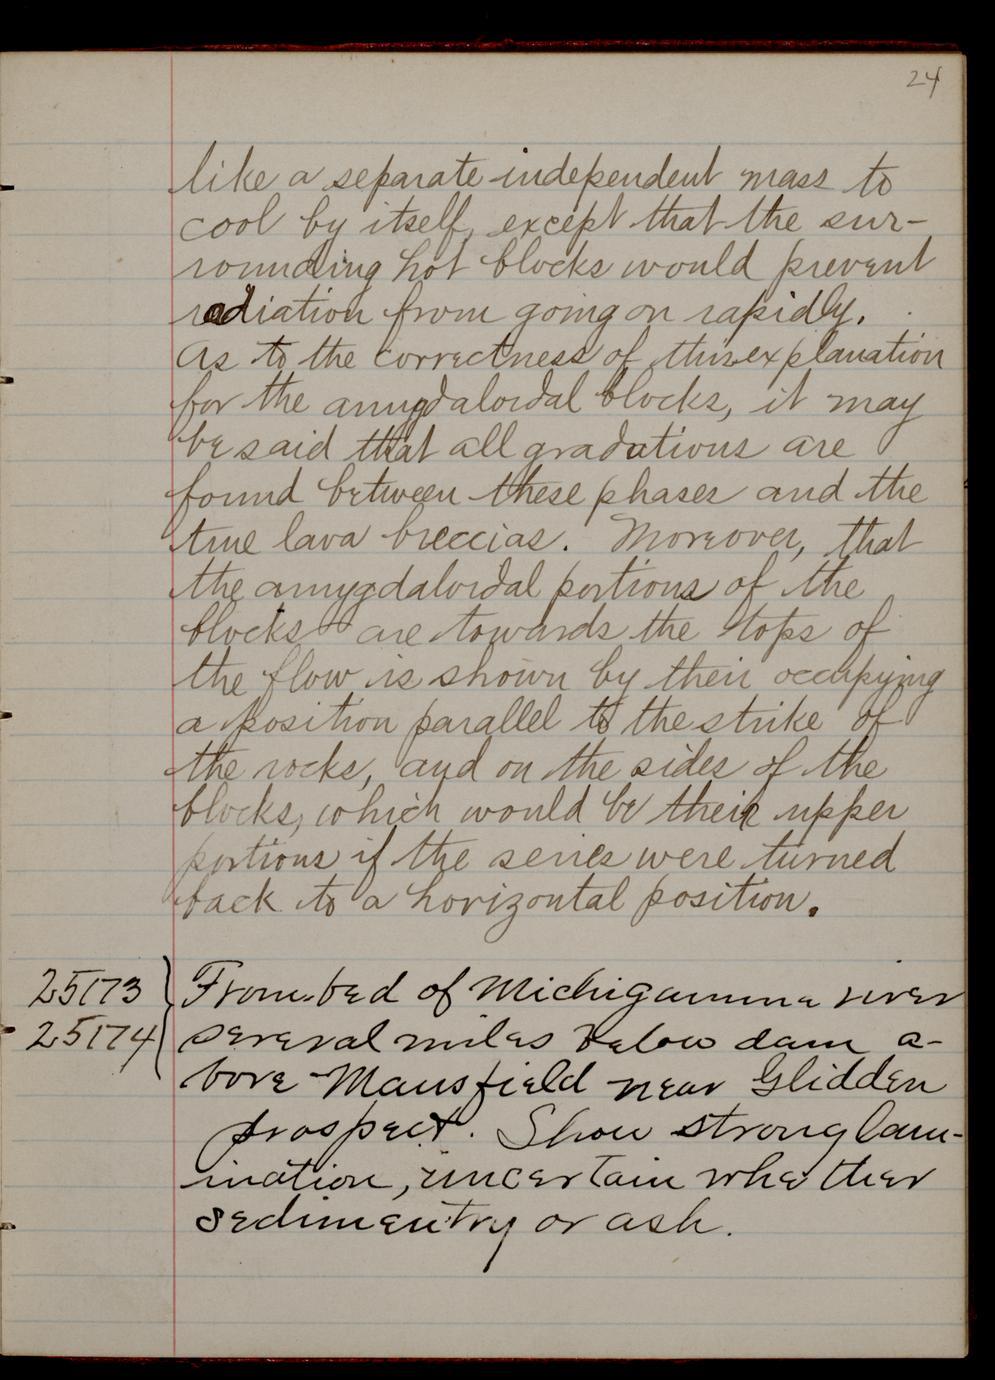 24
like a separate independent mass to
cool by itself, except that the sur-
rounding hot blocks would prevent
radiation from going on rapidly.
As to the correctness of this explanation
for the amygdaloidal blocks, it may
be said that all gradations are
found between these phases and the
true lava breccias. Moreover, that
the amygdaloidal portions of the
blocks are towards the tops of
the flow is shown by their occupying
a position parallel to the strike of
the rocks, and on the sides of the
blocks, which would be their upper
portions if the series were turned
back to a horizontal position.
25173 } From bed of Michigamme river
25174 several miles below dam a-
bove Mansfield near Glidden
prospect. Show strong lam-
ination, uncertain whether
sedimentry or ash.